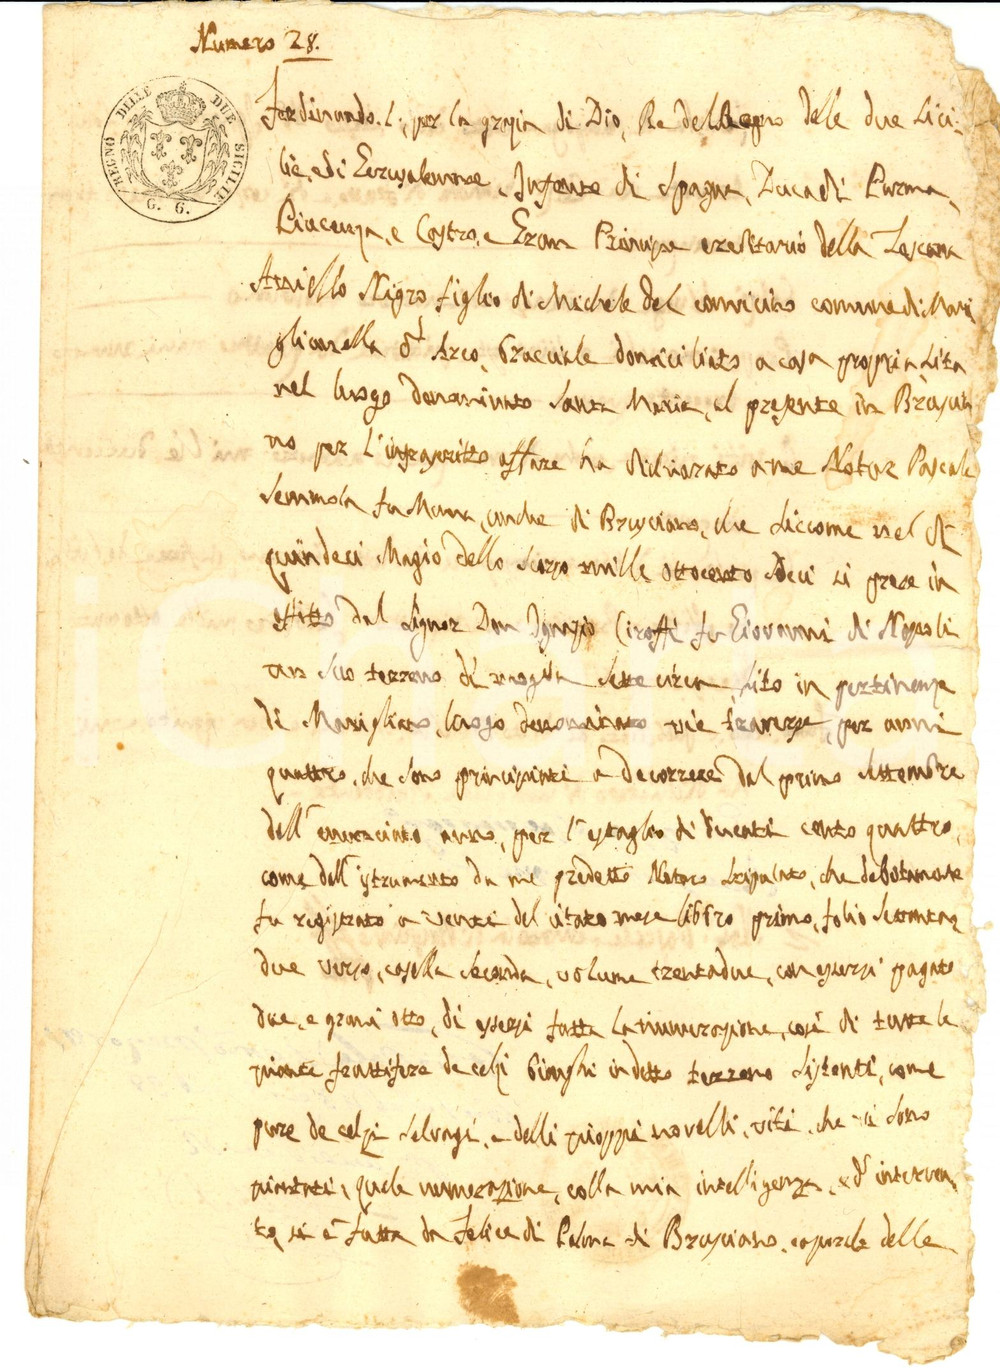 Numero 28.
REGNO DELLE DUE SICILIE
G. 6.
Ferdinando I., per la grazia di Dio, Re del Regno delle due Sici-
lie, e di Gerusalemme, Infante di Spagna, Duca di Parma,
Piacenza, e Castro, e Gran Principe ereditario della Toscana
Aniello Nigro figlio di Michele del convicino comune di Mari
glianella d' Arco, Bracciale domiciliato a casa propria sita
nel luogo denominato Santa Maria, al presente in Bruscia
no per l'infrascritto affare ha dichiarato a me Notar Pascale
Semmola fu anche di Brusciano, che siccome nel dì
quindeci Magio dello scorso mille ottocento sedeci si prese in
affitto dal Signor Don Ignazio Ciroffi fu Giovanni di Napoli
un suo terreno di moggia sette circa, sito in pertinenza
di Marigliano, luogo denominato vie traverse, per anni
quattro, che sono principiati a decorrere dal primo Settembre
dell' enunciato anno, per l'estaglio di ducati cento quattro,
come dell' istrumento da me predetto Notaro stipulato, che debitamente
fu registrato a venti del citato mese libro primo, folio settanta
due verso, casella seconda, volume trentadue, con essersi pagato
due, e grani otto, di essersi fatta la numerazione, così di tutte le
piante fruttifere de celzi bianchi in detto terreno sistenti, come
pure de celzi selvagi, e delli pioppi novelli, viti, che vi sono
piantati, quale numerazione, colla mia intelligenza, ed interven
to si è fatta da Felice di Palma di Brusciano, caporale delle